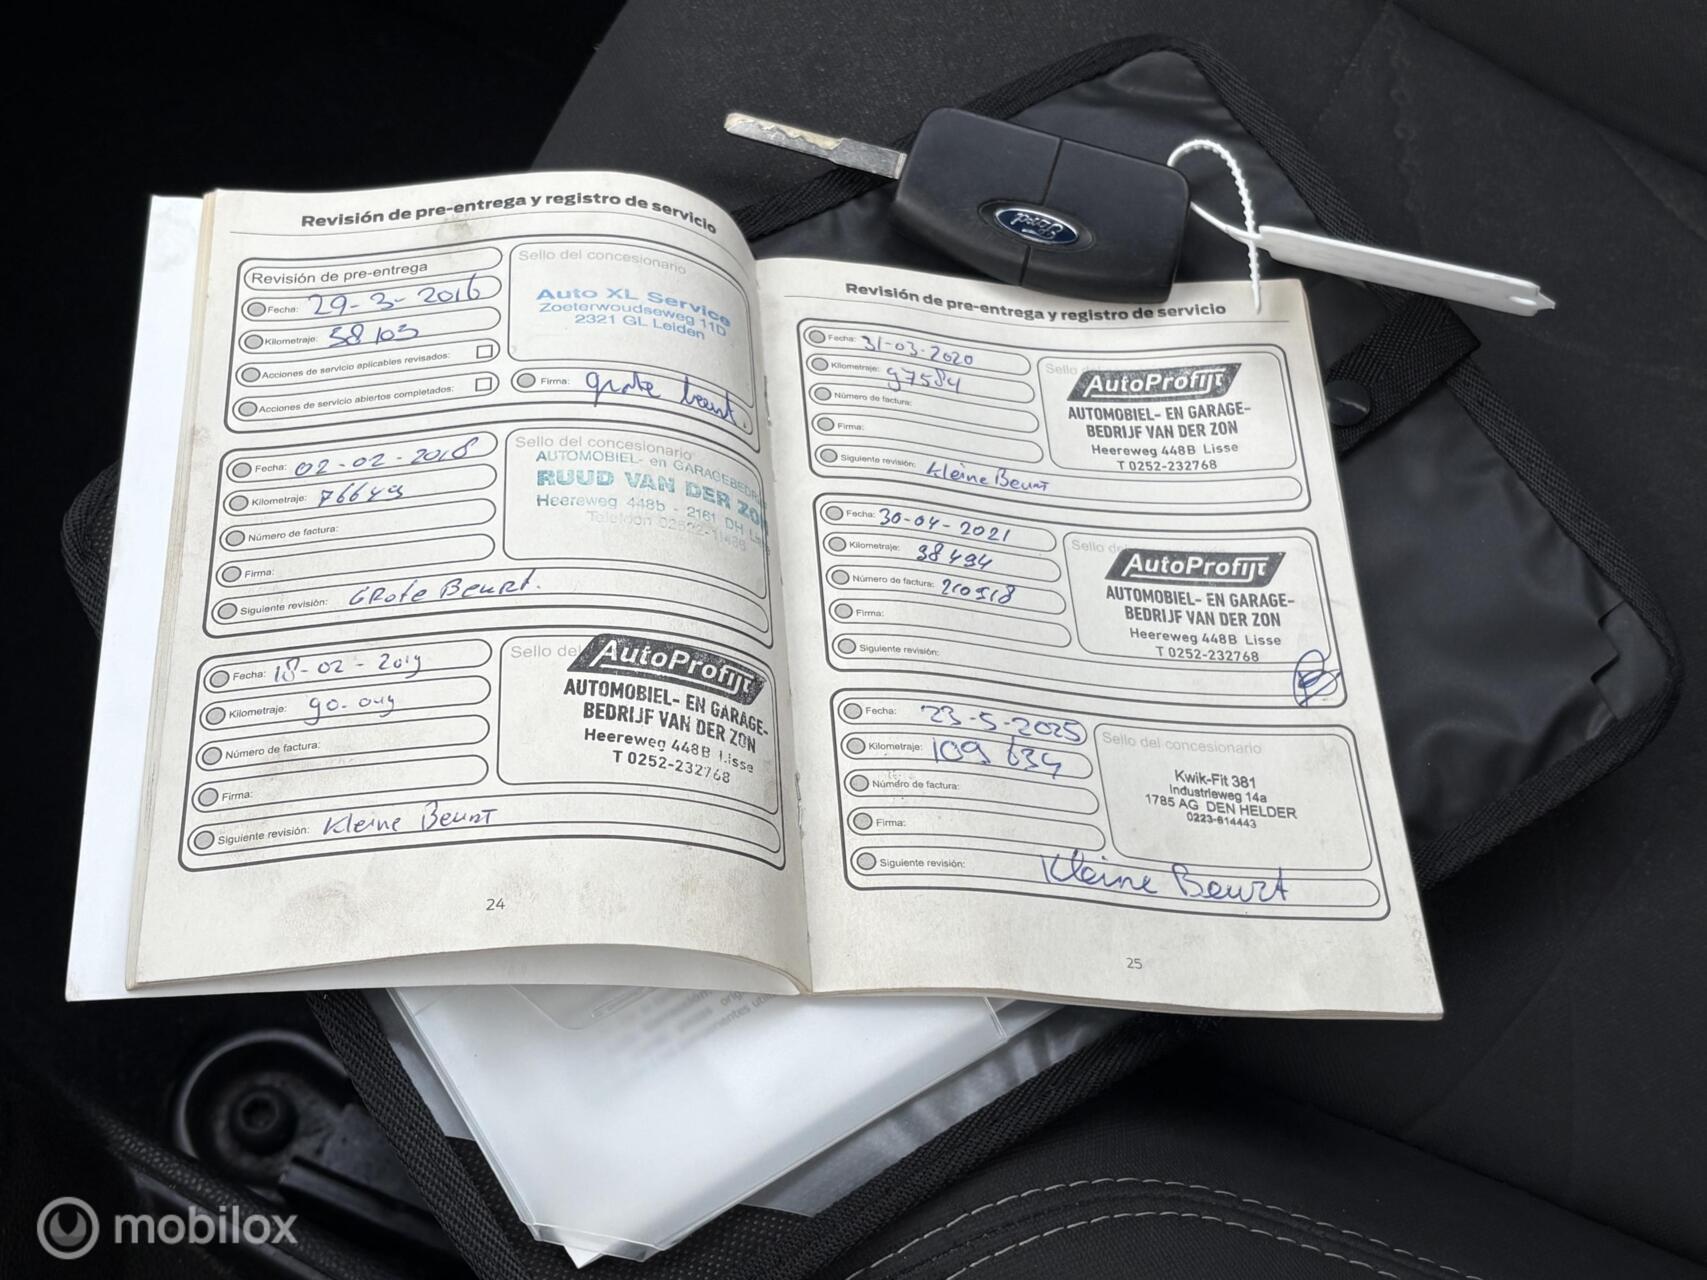 Revisión de pre-entrega y registro de servicio
Revisión de pre-entrega
Fecha: 29-3-2016
Kilometraje: 58103
Acciones de servicio aplicables revisados:
Acciones de servicio abiertos completados:
Sello del concesionario
Auto XL Service
Zoeterwoudseweg 11D
2321 GL Leiden
Firma: grote beurt.
Fecha: 02-02-2018
Kilometraje: 76649
Número de factura:
Firma:
Siguiente revisión: GRote BeuRt.
Sello del concesionario
AUTOMOBIEL- en GARAGEBEDRIJF
RUUD VAN DER ZON
Heereweg 448b - 2161 DH Lisse
Telefoon
Fecha: 18-02-2019
Kilometraje: 90.049
Número de factura:
Firma:
Siguiente revisión: Kleine BeuRT
Sello del
AutoProfijt
AUTOMOBIEL- EN GARAGE-
BEDRIJF VAN DER ZON
Heereweg 448B Lisse
T 0252-232768
24
Revisión de pre-entrega y registro de servicio
Fecha: 31-03-2020
Kilometraje: 97584
Número de factura:
Firma:
Siguiente revisión: Kleine BeuRT
Sello
AutoProfijt
AUTOMOBIEL- EN GARAGE-
BEDRIJF VAN DER ZON
Heereweg 448B Lisse
T 0252-232768
Fecha: 30-04-2021
Kilometraje: 98494
Número de factura: 210518
Firma:
Siguiente revisión:
Sello del
AutoProfijt
AUTOMOBIEL- EN GARAGE-
BEDRIJF VAN DER ZON
Heereweg 448B Lisse
T 0252-232768
Fecha: 23-5-2025
Kilometraje: 109 634
Número de factura:
Firma:
Siguiente revisión: Kleine Beurt
Sello del concesionario
Kwik-Fit 381
Industrieweg 14a
1785 AG DEN HELDER
0223-614443
25
Ford
mobilox